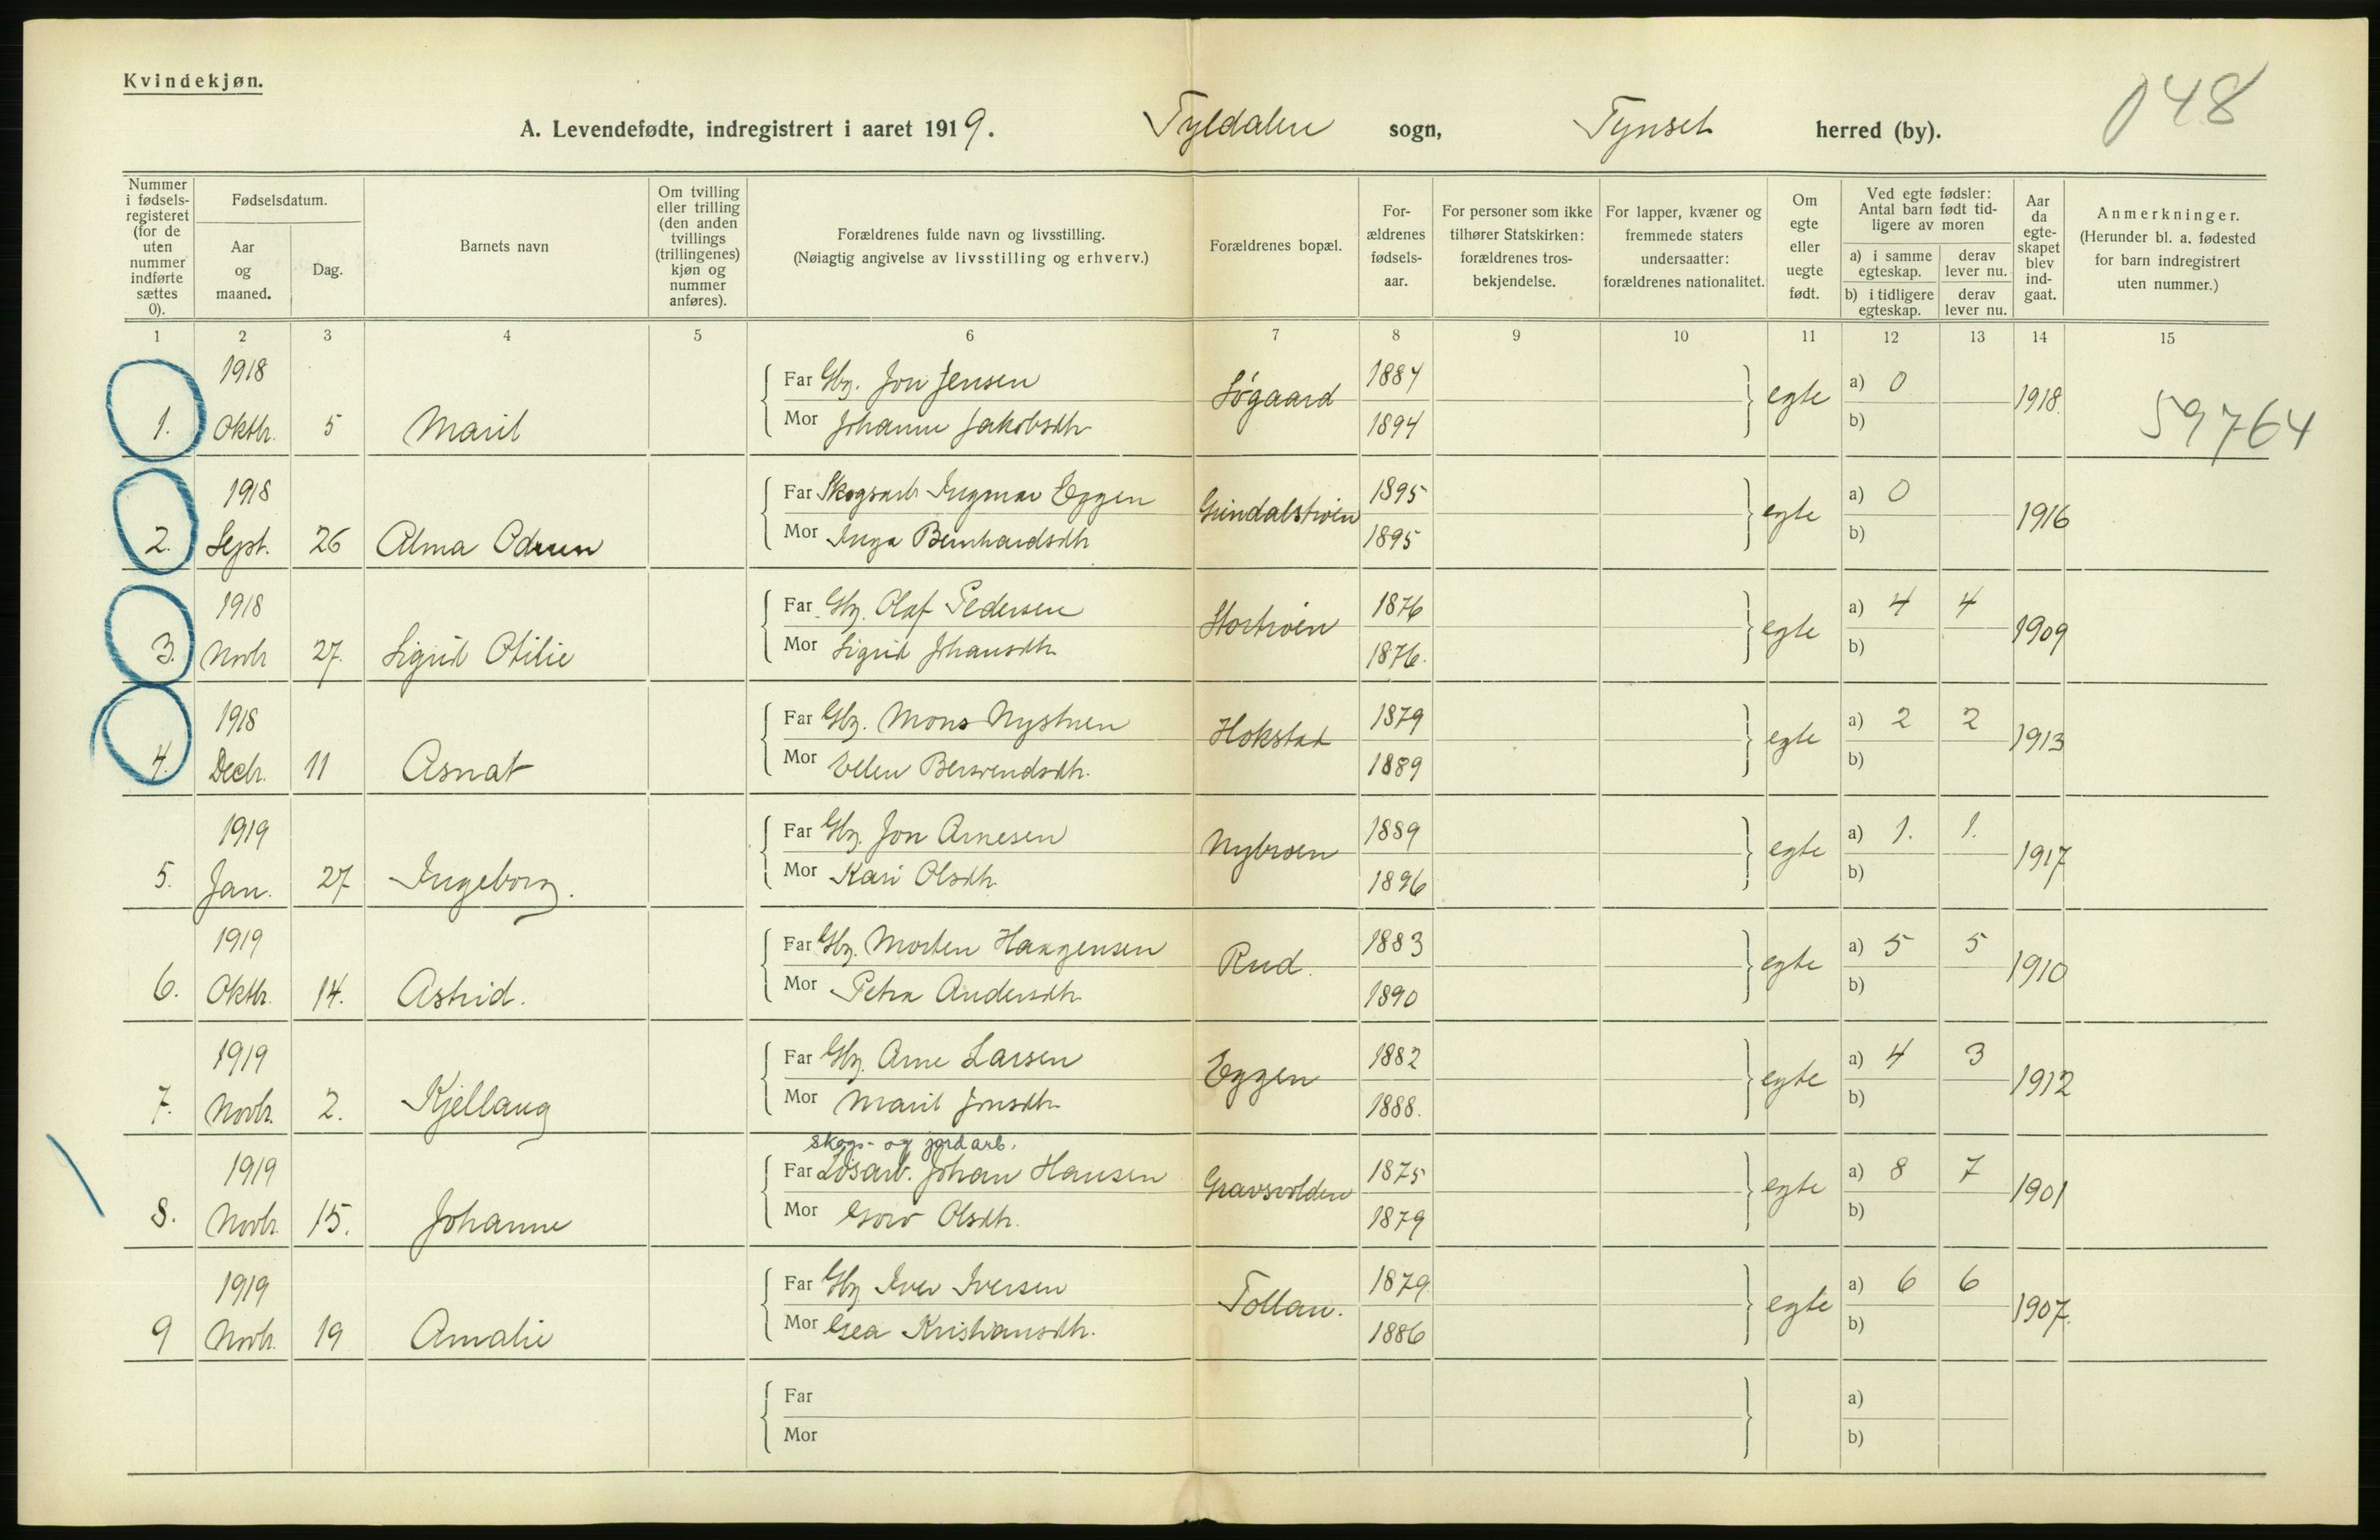 Kvindekjøn.
048
A. Levendefødte, indregistrert i aaret 1919. Tyldalen sogn, Tynset herred (by).
Nummer i fødsels-registeret (for de uten nummer indførte sættes 0).
Fødselsdatum.
Aar og maaned.
Dag.
Barnets navn
Om tvilling eller trilling (den anden tvillings (trillingenes) kjøn og nummer anføres).
Forældrenes fulde navn og livsstilling.
(Nøiagtig angivelse av livsstilling og erhverv.)
Forældrenes bopæl.
For-ældrenes fødsels-aar.
For personer som ikke tilhører Statskirken: forældrenes tros-bekjendelse.
For lapper, kvæner og fremmede staters undersaatter: forældrenes nationalitet.
Om egte eller uegte født.
Ved egte fødsler: Antal barn født tid-ligere av moren
a) i samme egteskap.
derav lever nu.
b) i tidligere egteskap.
derav lever nu.
Aar da egte-skapet blev ind-gaat.
Anmerkninger.
(Herunder bl. a. fødested for barn indregistrert uten nummer.)
1 2 3 4 5 6 7 8 9 10 11 12 13 14 15
1918 Far Gbr. Jon Jensen Søgaard 1884 egte a) 0 1918. 59764
1. Oktbr. 5 Marit Mor Johanne Jakobsdtr 1894 b)
1918 Far Skogsarb Ingmar Eggen 1895 egte a) 0 1916
2. Sept. 26 Alma Odrun Mor Inga Bernhardsdtr 1895 b)
1918 Far Gbr. Olaf Pedersen Stortrøen 1876 egte a) 4 4 1909
3. Novbr 27. Sigrid Otilie Mor Sigrid Johansdtr. 1876. b)
1918 Far Gbr. Mons Nystuen Hokstad 1879 egte a) 2 2 1913
4. Decbr. 11 Asnat Mor Ellen Bersvendsdtr. 1889 b)
1919 Far Gbr. Jon Arnesen Nybroen 1889 egte a) 1. 1. 1917
5. Jan. 27 Ingeborg. Mor Kari Olsdtr. 1896 b)
1919 Far Gbr. Morten Haagensen Rud. 1883 egte a) 5 5 1910
6. Oktbr. 14. Astrid. Mor Petra Andersdtr. 1890 b)
1919 Far Gbr. Arne Larsen Eggen 1882 egte a) 4 3 1912
7. Novbr. 2. Kjellaug Mor Marit Jonsdtr. 1888. b)
skogs- og jordarb.
1919 Far Løsarb. Johan Hansen Gravsvolden 1875 egte a) 8 7 1901
8. Novbr. 15. Johanne Mor Goro Olsdtr. 1879 b)
1919 Far Gbr Iver Iversen Tollan. 1879. egte a) 6 6 1907.
9 Novbr. 19 Amalie Mor Gea Kristiansdtr. 1886 b)
Far a)
Mor b)